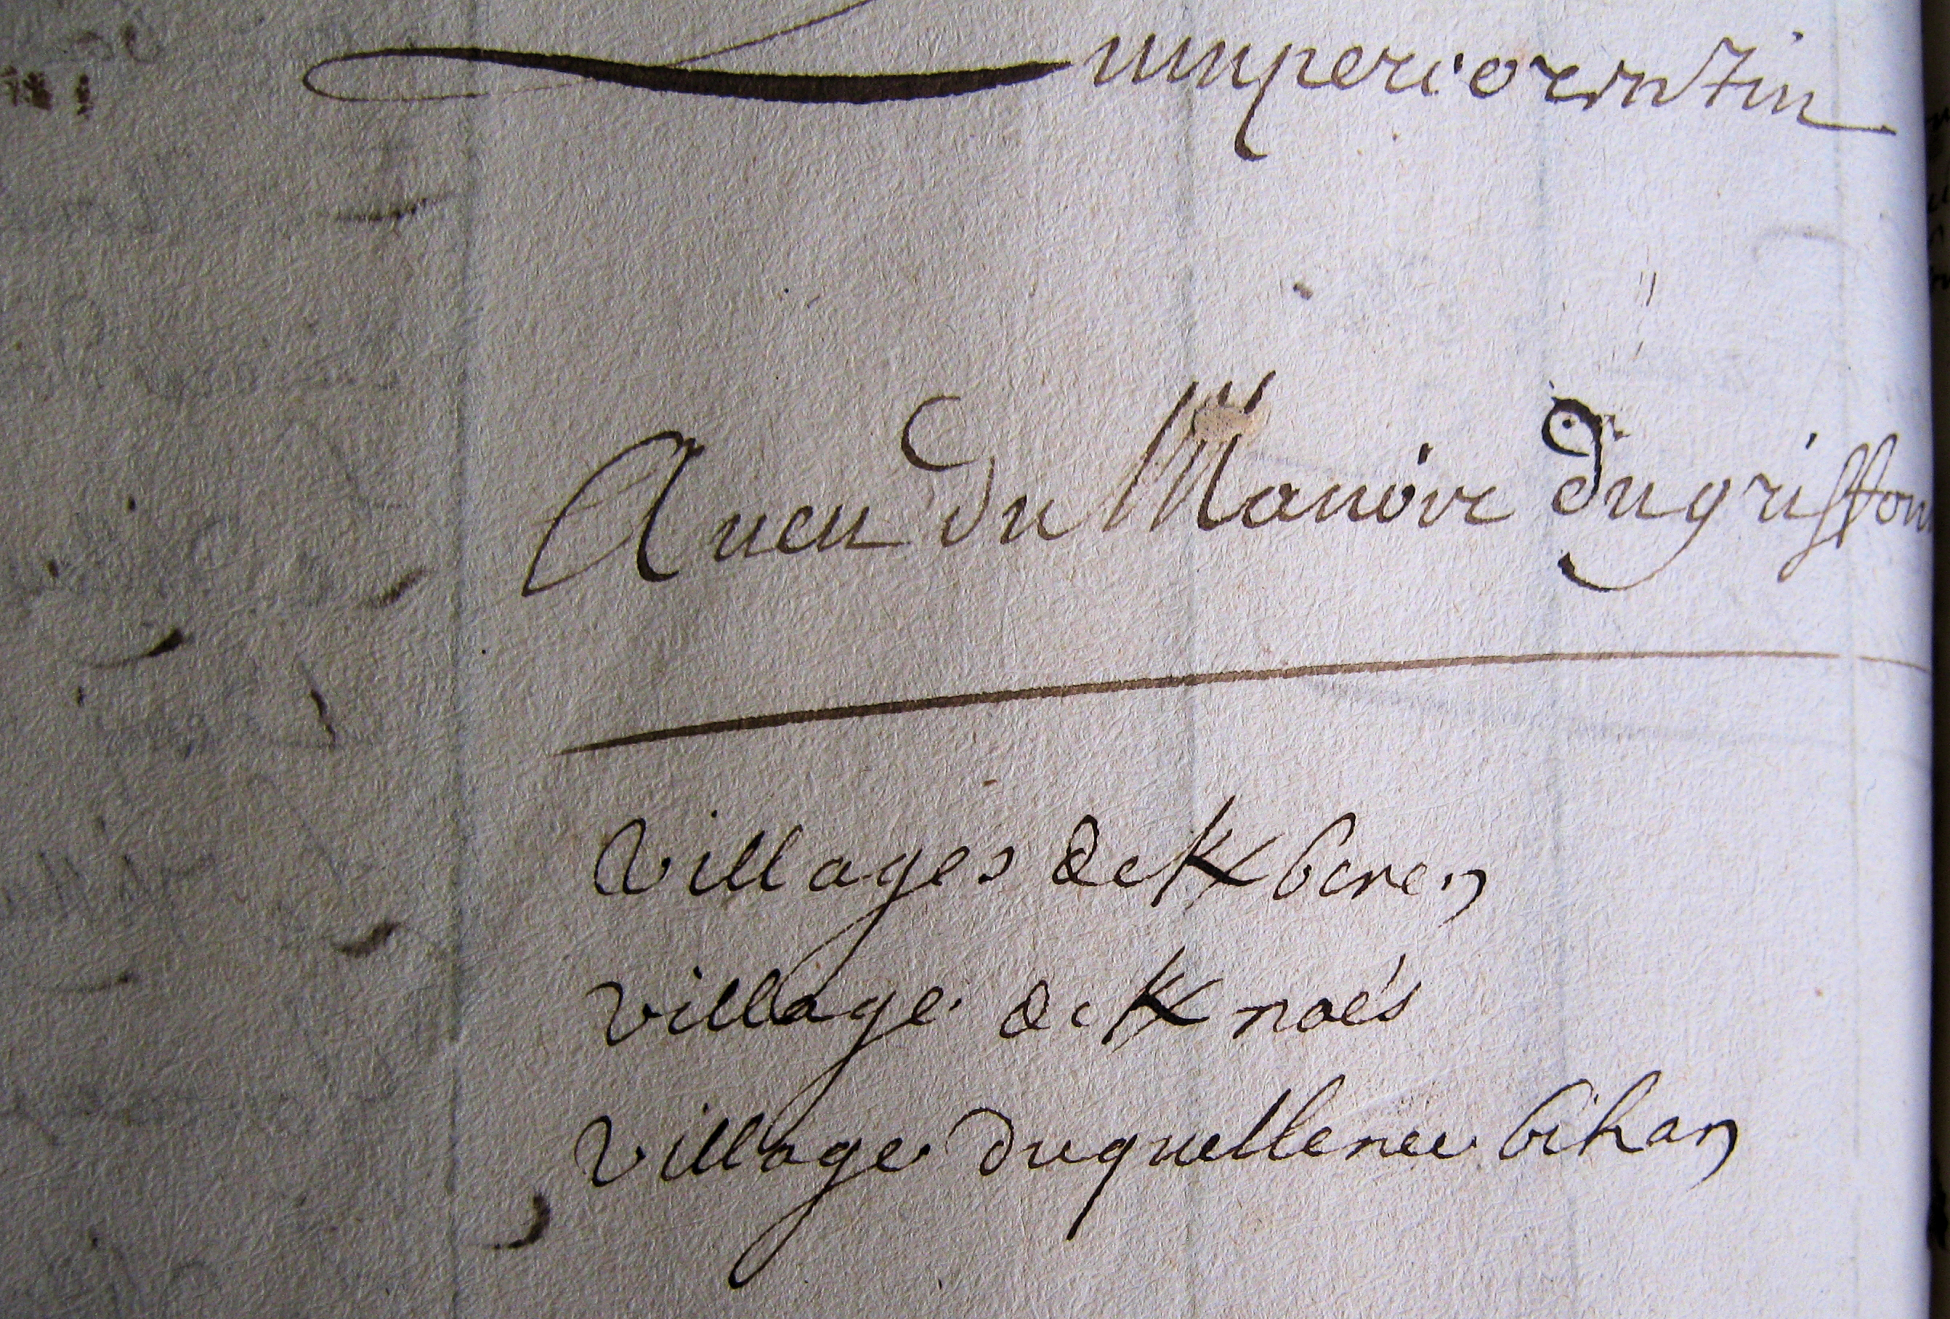 Quimpercorentin
Aueu du Manoir du griffon
Villages de K/beren
village de K/noës
village du quellenec bihan